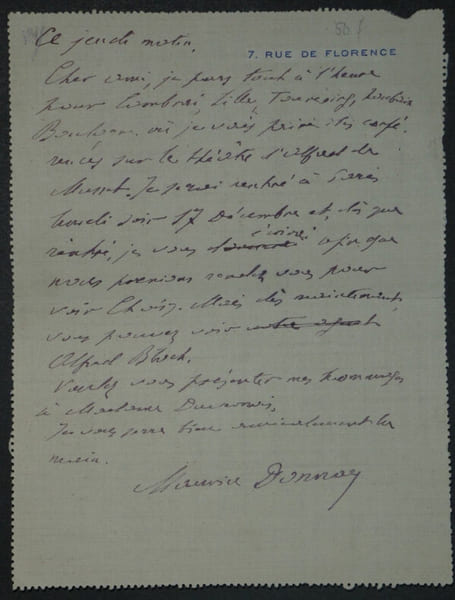 Ce jeudi matin.
7, RUE DE FLORENCE
Cher ami, je pars tout à l'heure
pour Cambrai, Lille, Tourcoing, Roubaix
où je vais faire des confé-
rences sur le théâtre d'Alfred de
Musset. Je serai rentré à Paris
lundi soir 17 Décembre et, dès que
rentré, je vous écrirai afin que
nous prenions rendez vous pour
voir Choisy. Mais dès maintenant,
vous pouvez voir notre agent
Alfred Bloch.
Voulez vous présenter mes hommages
à Madame
Je vous serre bien amicalement la
main.
Maurice Donnay